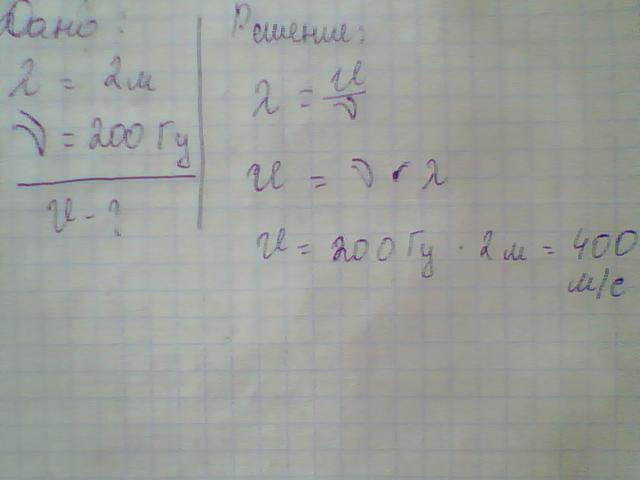 Дано:
λ = 2м
ν = 200 Гц
υ - ?
Решение:
λ = υ/ν
υ = ν · λ
υ = 200 Гц · 2 м = 400
м/с